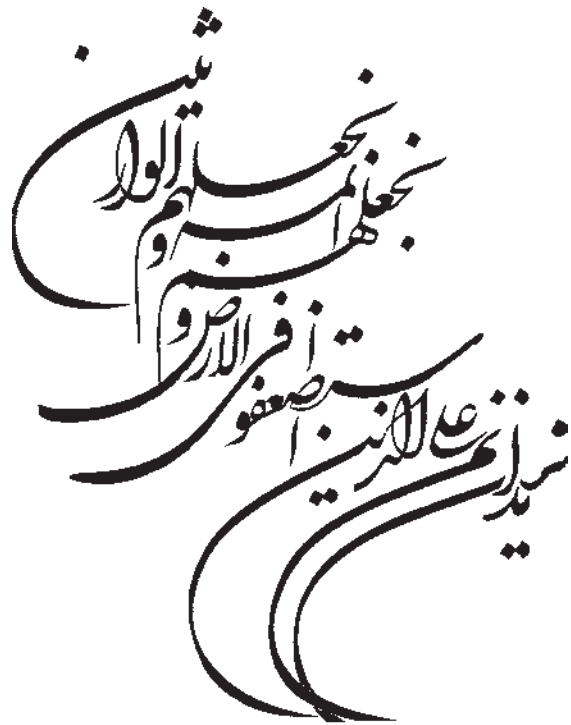 نرید ان نمن علی الذین
استضعفوا فی الارض و
نجعلهم ائمة و
نجعلهم الوارثین